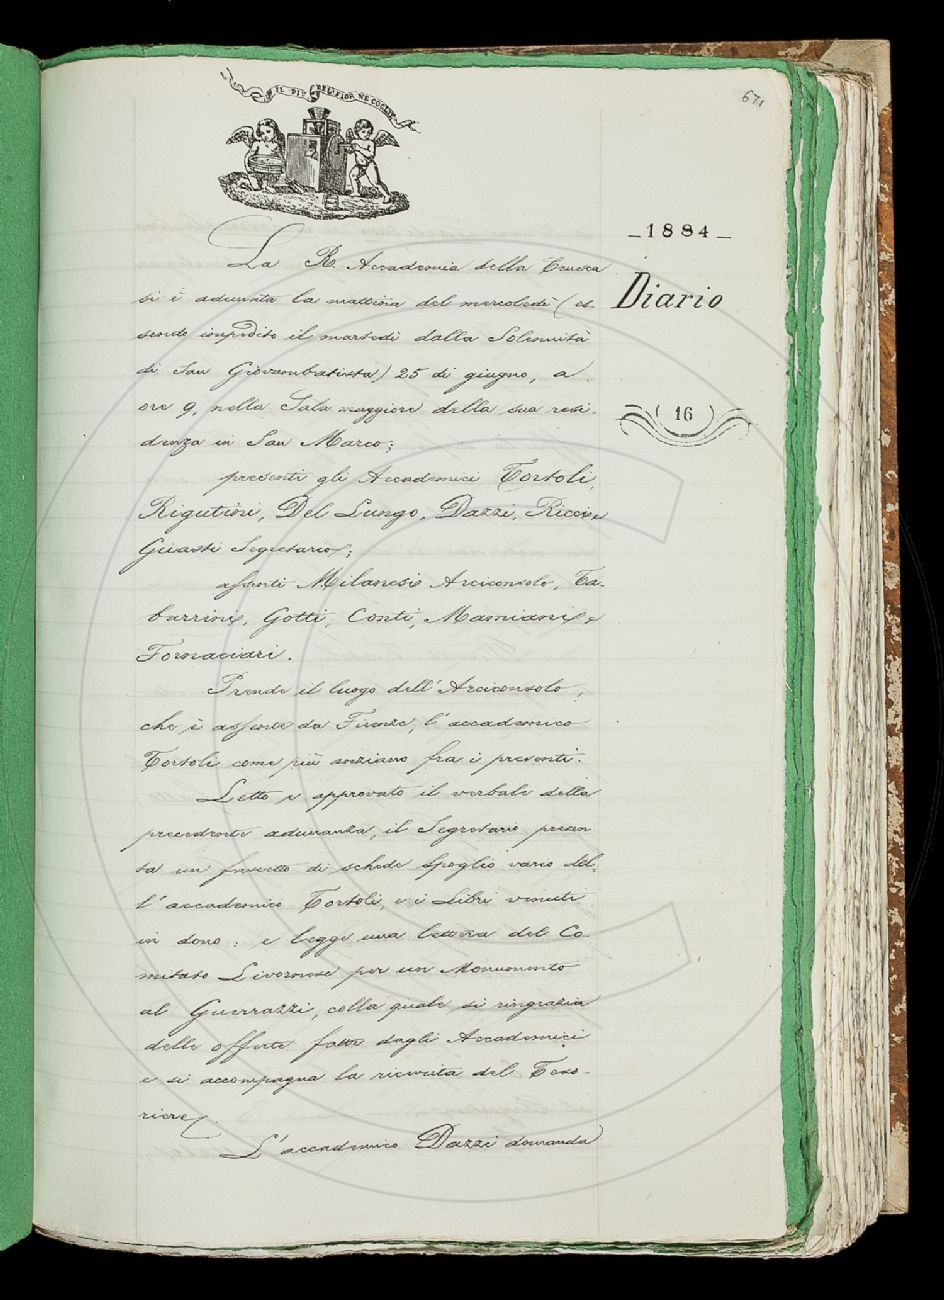 IL PIÙ BEL FIOR NE COGLIE
671
1884
Diario
16
La R. Accademia della Crusca
si è adunata la mattina del mercoledì (es-
sendo impedito il martedì dalla Solennità
di San Giovambatista) 25 di giugno, a
ore 9, nella Sala maggiore della sua resi-
denza in San Marco;
presenti gli Accademici Tortoli,
Rigutini, Del Lungo, Dazzi, Ricci e
Guasti Segretario;
assenti Milanesi Arciconsolo, Ta-
barrini, Gotti, Conti, Mamiani e
Fornaciari.
Prende il luogo dell'Arciconsolo,
che è assente da Firenze, l'accademico
Tortoli come più anziano fra i presenti.
Letto e approvato il verbale della
precedente adunanza, il Segretario presen
ta un fascetto di schede spoglio vario del-
l'accademico Tortoli, e i Libri venuti
in dono: e legge una lettera del Co-
mitato Livornese per un Monumento
al Guerrazzi, colla quale si ringrazia
delle offerte fatte dagli Accademici
e si accompagna la ricevuta del Teso-
riere.
L'accademico Dazzi domanda